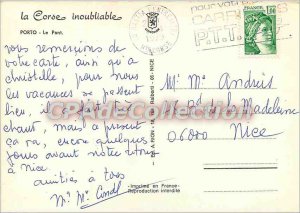 la Corse inoubliable
PORTO - Le Pont.
nous remercions de
votre carte, ainsi qu'à
christelle, pour nous
les vacances se passent
bien, il fait
chaut, mais à présent
ça va, encore quelques
jours avant notre retour
à Nice
amitiés à tous
Mr Me
Mr Me Andris
la Madeleine
06000
Nice
- Imprimé en France -
Reproduction interdite
P.T.T.
1,00